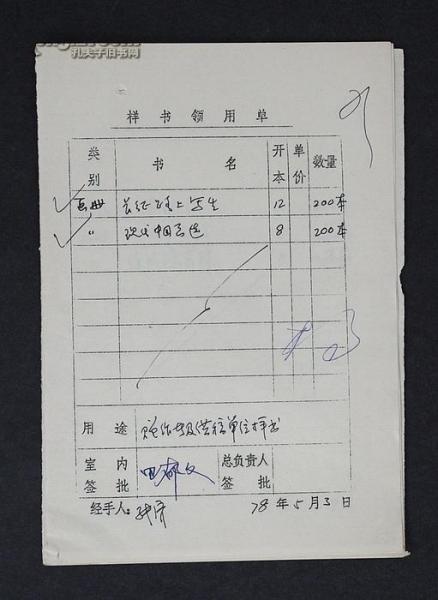 孔夫子旧书网
样书领用单
类别 书名 开本 单价 数量
画册 长征路上写生 12 200本
〃 现代中国画选 8 200本
用途 赠作者及供稿单位样书
室内签批 总负责人签批
经手人: 78年5月3日